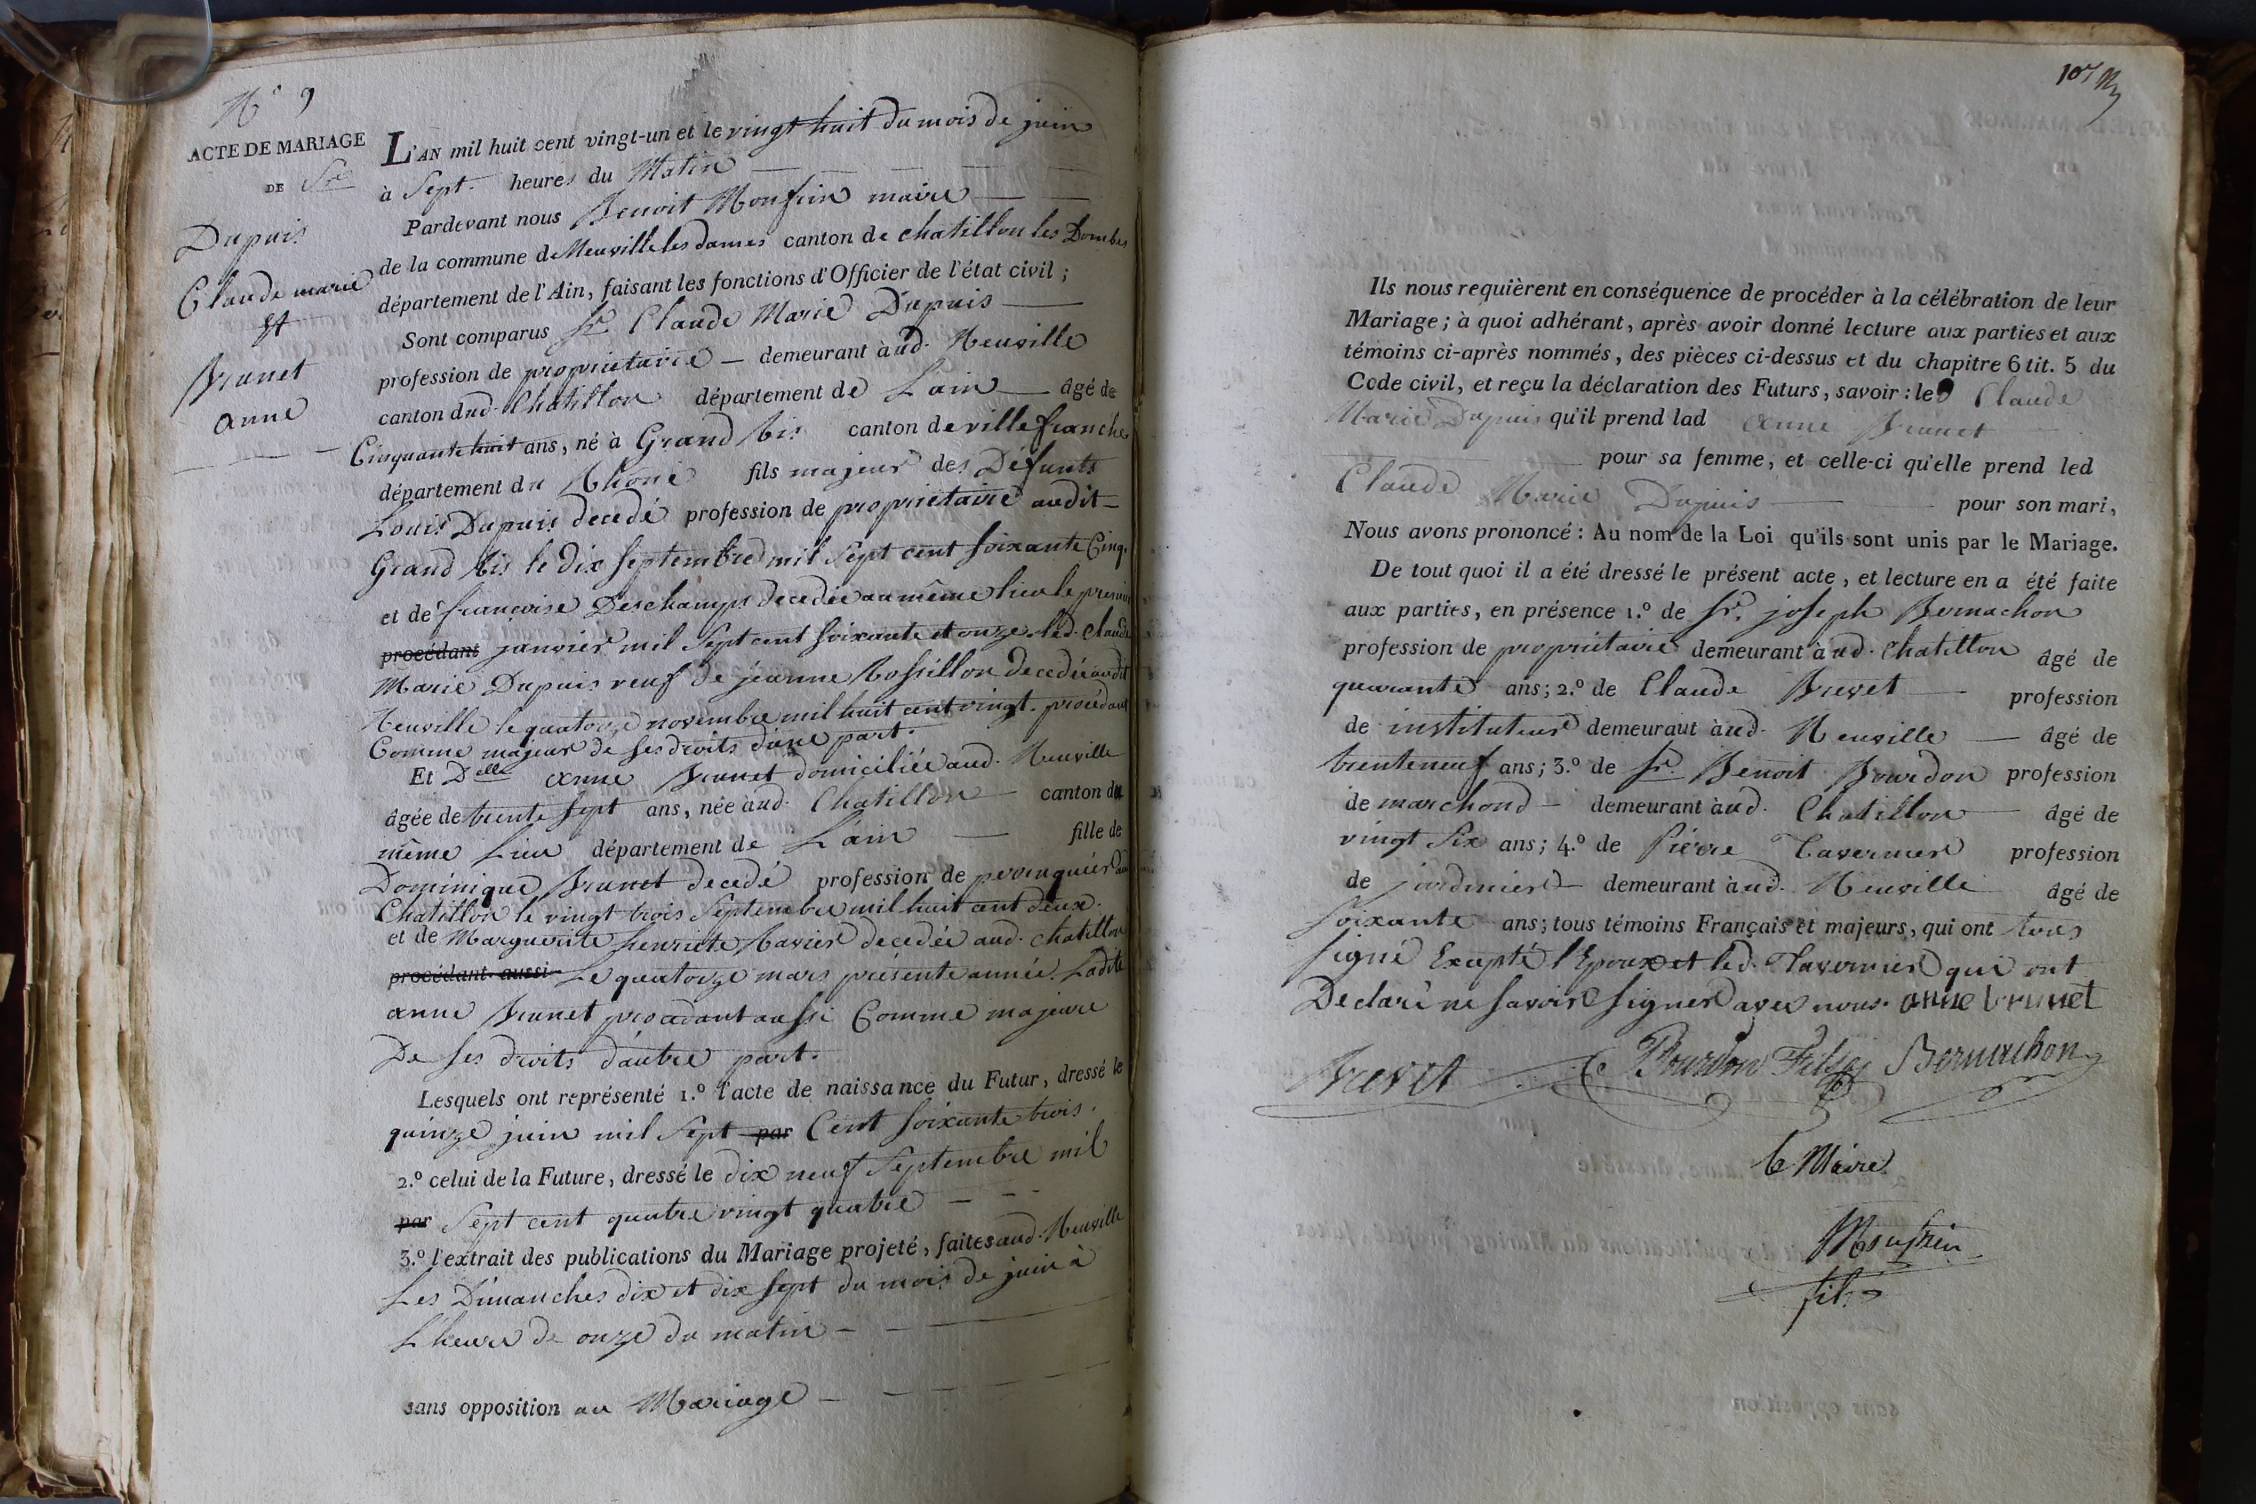 N° 9
ACTE DE MARIAGE
DE Sr
Dupuis
Claude marie
et
Brunet
anne
L'AN mil huit cent vingt-un et le vingt huit du mois de juin
à Sept heures du Matin
Pardevant nous Benoit Monfrin maire
de la commune de Neuville les dames canton de chatillon les Dombes
département de l'Ain, faisant les fonctions d'Officier de l'état civil ;
Sont comparus Sr. Claude Marie Dupuis
profession de propriétaire demeurant àud. Neuville
canton dud. Chatillon département de Lain âgé de
Cinquante huit ans, né à Grand Ris canton de ville franche
département du Rhone fils majeur des Défunts
Louis Dupuis decedé profession de propriétaire audit
Grand Ris le dix septembre mil sept cent soixante Cinq.
et de françoise Deschamps decedée au même lieu le premier
procédant janvier mil sept cent soixante et onze. led. Claude
Marie Dupuis veuf de jeanne Rossillon decedée audit
Neuville le quatorze novembre mil huit cent vingt. procédant
Comme majeur de ses droits d'une part.
Et Delle anne Brunet domiciliée aud. Neuville
âgée de trente sept ans, née àud. Chatillon canton du
même Lieu département de Lain fille de
Dominique Brunet decedé profession de perruquier aud
Chatillon le vingt trois Septembre mil huit cent deux.
et de Marguerite henriete Ravier decedée aud. chatillon
procédant aussi Le quatorze mars présente année. Ladite
anne Brunet procedant aussi Comme majeure
De ses droits d'autre part.
Lesquels ont représenté 1.º l'acte de naissance du Futur, dressé le
quinze juin mil sept par Cent soixante trois.
2.º celui de la Future, dressé le dix neuf Septembre mil
par Sept cent quatre vingt quatre
3.º l'extrait des publications du Mariage projeté, faites aud. Neuville
Les Dimanches dix et dix sept du mois de juin à
L'heure de onze du matin
sans opposition au Mariage
107
Ils nous requièrent en conséquence de procéder à la célébration de leur
Mariage ; à quoi adhérant, après avoir donné lecture aux parties et aux
témoins ci-après nommés, des pièces ci-dessus et du chapitre 6 tit. 5 du
Code civil, et reçu la déclaration des Futurs, savoir : le Claude
Marie Dupuis qu'il prend lad anne Brunet
pour sa femme, et celle-ci qu'elle prend led
Claude Marie Dupuis pour son mari,
Nous avons prononcé : Au nom de la Loi qu'ils sont unis par le Mariage.
De tout quoi il a été dressé le présent acte, et lecture en a été faite
aux parties, en présence 1.º de Sr. joseph Bernachon
profession de propriétaire demeurant àud. Chatillon âgé de
quarante ans ; 2.º de Claude Brevet profession
de instituteur demeurant àud. Neuville âgé de
trente neuf ans ; 3.º de Sr. Benoit Bourdon profession
de marchand demeurant àud. Chatillon âgé de
vingt Six ans ; 4.º de Pierre Tavernier profession
de jardinier demeurant àud. Neuville âgé de
soixante ans ; tous témoins Français et majeurs, qui ont tous
signé Excepté l'Epoux et led. Tavernier qui ont
Declaré ne savoir signer avec nous. anne brunet
Brevet Bourdon Fils Bernachon
Le Maire
Monfrin
fils